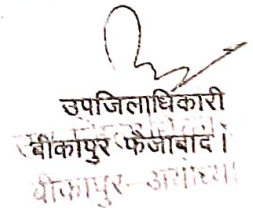 उपजिलाधिकारी
बीकापुर फैजाबाद।
बीकापुर-अयोध्या